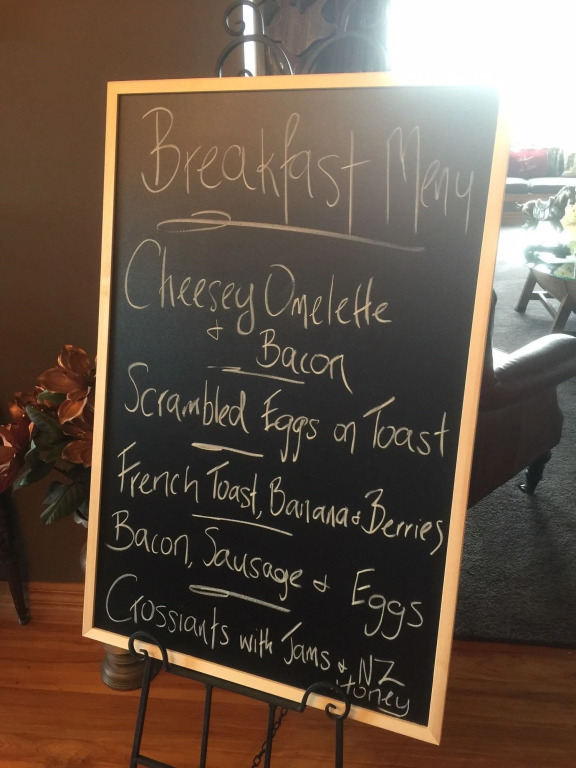 Breakfast Menu
Cheesey Omelette
& Bacon
Scrambled Eggs on Toast
French Toast, Banana & Berries
Bacon, Sausage & Eggs
Crossiants with Jams & NZ
Honey